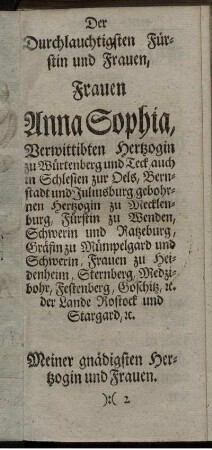 Der
Durchlauchtigsten Für-
stin und Frauen,
Frauen
Anna Sophia,
Verwittibten Hertzogin
zu Würtenberg und Teck auch
in Schlesien zur Oels, Bern-
stadt und Juliusburg gebohr-
nen Hertzogin zu Mecklen-
burg, Fürstin zu Wenden,
Schwerin und Ratzeburg,
Gräfin zu Mümpelgard und
Schwerin, Frauen zu Hei-
denheim, Sternberg, Medzi-
bohr, Festenberg, Goschitz, ꝛc.
der Lande Rostock und
Stargard, ꝛc.
Meiner gnädigsten Her-
tzogin und Frauen.
):( 2